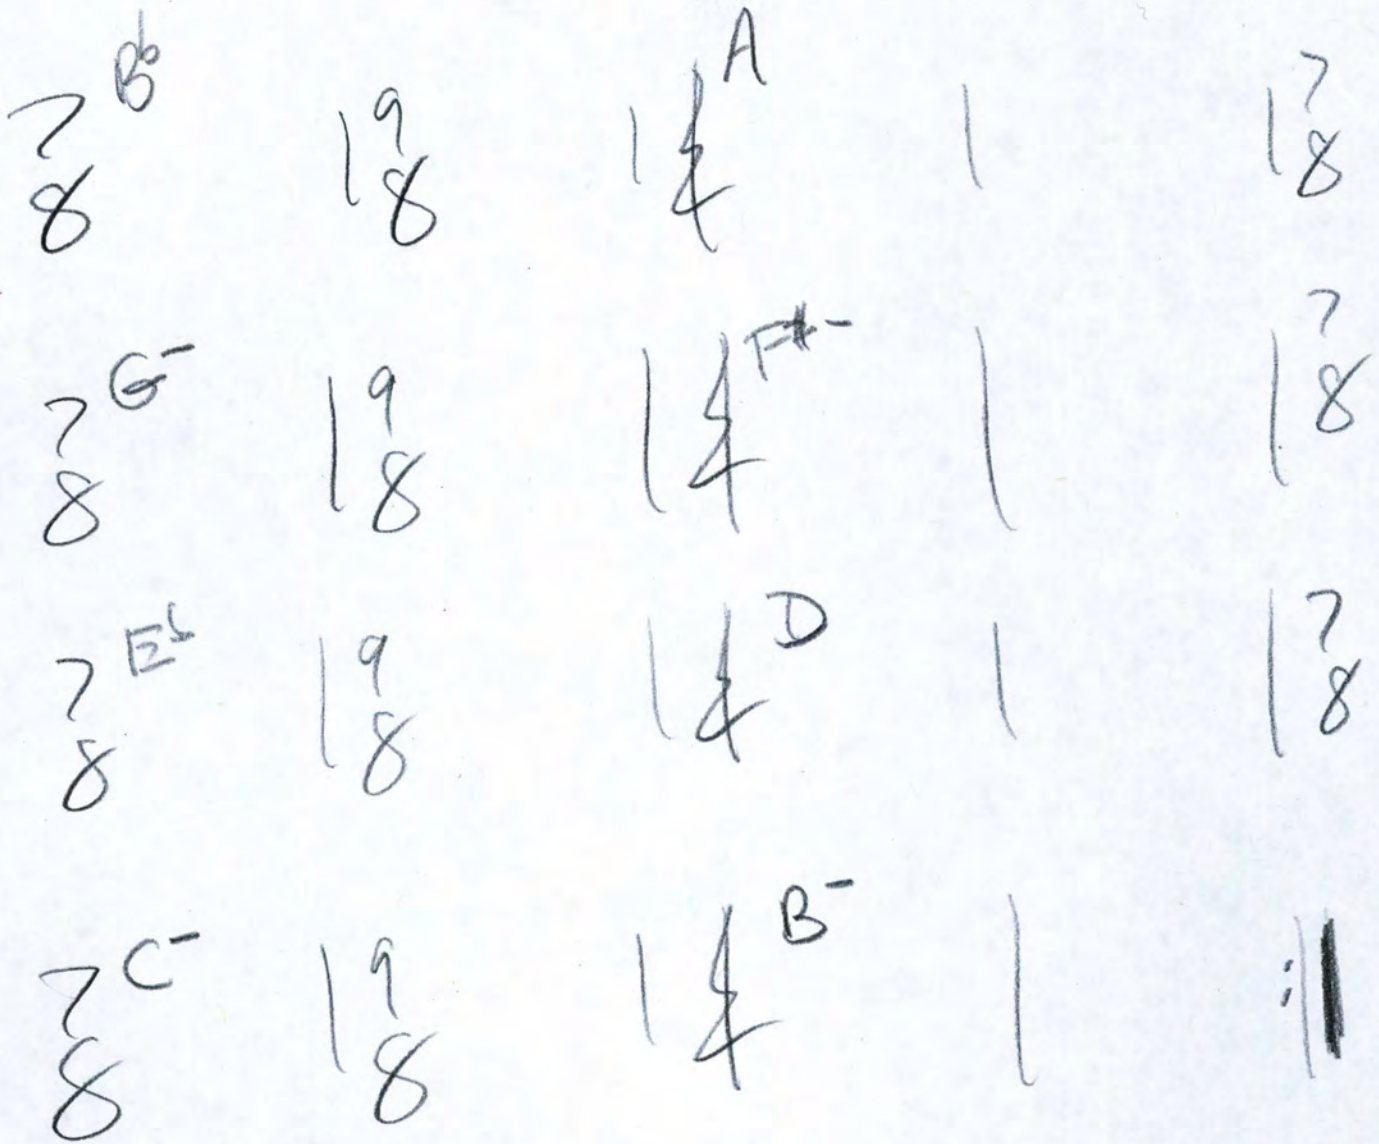 7/8 B♭ | 9/8 | 4/4 A | | 7/8
7/8 G- | 9/8 | 4/4 F#- | | 7/8
7/8 E♭ | 9/8 | 4/4 D | | 7/8
7/8 C- | 9/8 | 4/4 B- | :||